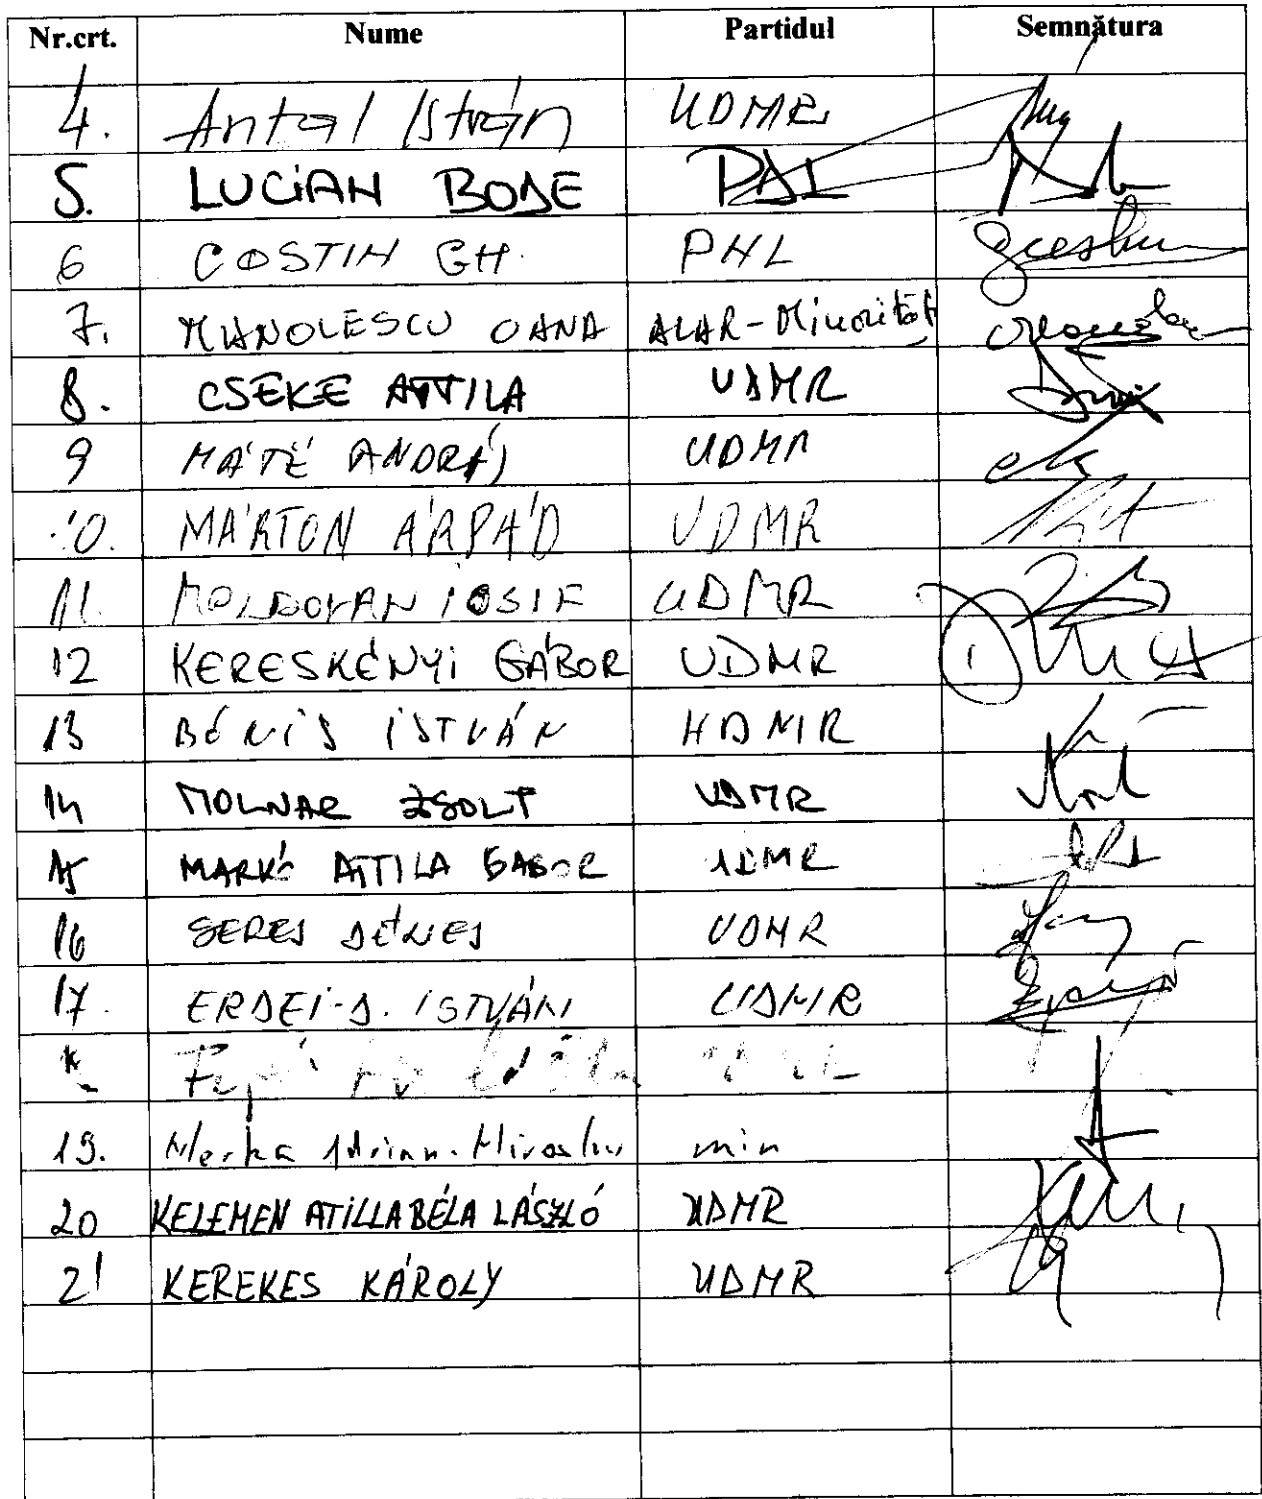 Nr.crt. Nume Partidul Semnătura
4. Antal István UDMR
5. LUCIAN BODE PDL
6 COSTIN GH. PNL
7. MANOLESCU OANA ALAR-Minorități
8. CSEKE ATTILA UDMR
9 MÁTÉ ANDRÁS UDMR
10. MÁRTON ÁRPÁD UDMR
11. MOLDOVAN IOSIF UDMR
12 KERESKÉNYI GÁBOR UDMR
13 BÓNIS ISTVÁN UDMR
14 MOLNAR ZSOLT UDMR
15 MARKÓ ATTILA GABOR UDMR
16 SERES DÉNES UDMR
17. ERDEI-D. ISTVÁN UDMR
19. Merka Adrian-Miroslav min
20 KELEMEN ATILLA BÉLA LÁSZLÓ UDMR
21 KEREKES KÁROLY UDMR